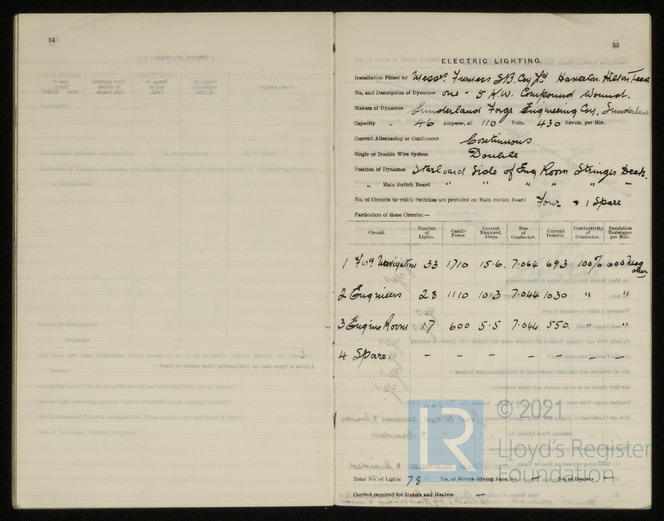 34
35
ELECTRIC LIGHTING.
Installation Fitted by Messrs Furness S.B. Coy Ltd Haverton Hill on Tees
No. and Description of Dynamos One - 5 K.W. Compound Wound.
Makers of Dynamos Sunderland Forge Engineering Coy, Sunderland
Capacity " 46 Amperes, at 110 Volts, 430 Revols. per Min.
Current Alternating or Continuous Continuous
Single or Double Wire System Double
Position of Dynamos Starboard Side of Eng Room Stringer Deck.
" Main Switch Board " " " " " "
No. of Circuits to which Switches are provided on Main Switch Board Four & 1 Spare
Particulars of these Circuits:—
Circuit. Number of Lights. Candle Power. Current Required. Amps. Size of Conductor. Current Density. Conductivity of Conductor. Insulation Resistance per Mile.
1 Navigation 33 1710 15.6. 7.064 693 100% 600 Meg ohms
2 Engineers 28 1110 10.3 7.044 1030 " "
3 Engine Room 17 600 5.5 7.044 550. " "
4 Spare. – – – – – – –
LR
© 2021
Lloyd's Register
Foundation
Total No. of Lights 78 No. of Motors driving Fans, &c. — No. of Heaters —
Current required for Motors and Heaters —